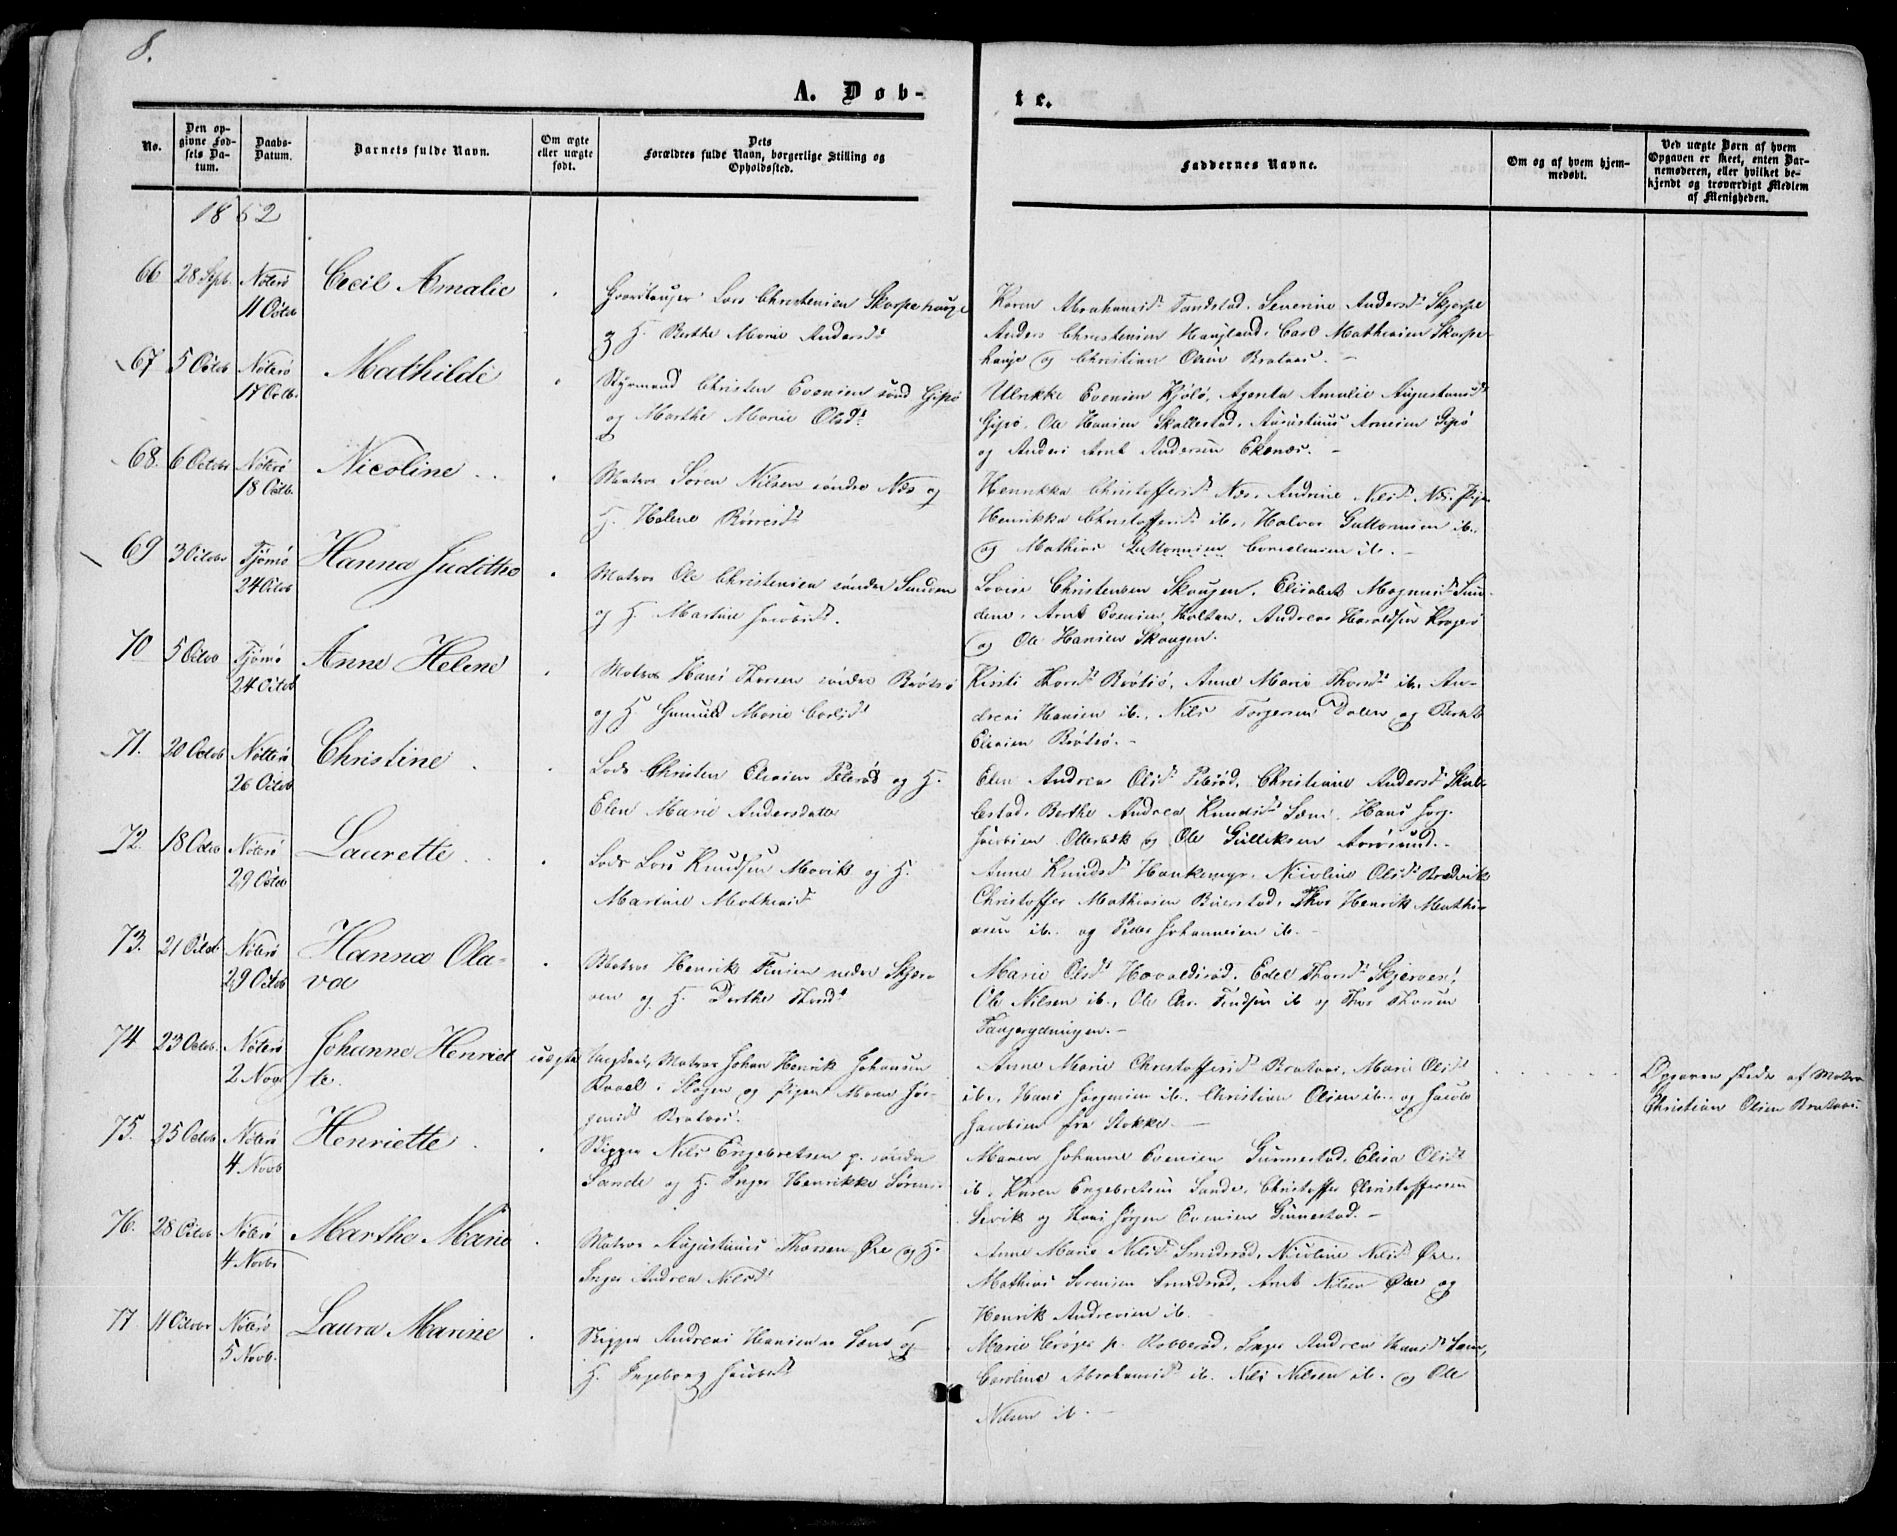 8.
A. Døb-
te.
No.
Den op-
givne Fød-
sels Da-
tum.
Daabs-
Datum.
Barnets fulde Navn.
Om ægte
eller uægte
født.
Dets
Forældres fulde Navn, borgerlige Stilling og
Opholdssted.
Faddernes Navne.
Om og af hvem hjem-
medøbt.
Ved uægte Børn af hvem
Opgaven er skeet, enten Bar-
nemoderen, eller hvilket be-
kjendt og troværdigt Medlem
af Menigheden.
1852
66 28 Septb. Nøterø
11 Octob
Cecil Amalie
Lars Christensen Skarpehauge
og H. Berthe Marie Andersdt
Karen Abrahamsdt Tandstad. Severine Andersdt Skjerpe
Anders Christensen Haugland. Carl Mathiesen Skarpe-
hauge og Christian Olsen Brataas. -
67 5 Octob Nøterø
17 Octb.
Mathilde
Styrmand Christen Evensen sønd Gipø
og Marthe Marie Olsdt
Ulrikke Evensen Kjølø, Agenta Amalie Augustinusdt
Gipø, Ole Hansen Skallestad, Augustinus Arnesen Gipø
og Anders Arnt Andersen Ekenæs. -
68. 6 Octobr Nøterø
18 Octb.
Nicoline
Matros Søren Nilsen søndre Næs og
H. Helene
Henrikka Christoffersdt Næs, Andrine Nilsdt Næs, Pige
Henrikka Christoffersdt ib., Halvor Guttormsen ib.
og Mathias Guttormsen ib. -
69 3 Octobr Tjømø
24 Octob
Hanna Judithe
Matros Ole Christensen søndre Sunden
og H. Martine Jacobsdt.
Lovise Christensen Skaugen, Elisabeth Magnusdt Sun-
dene, Arnt Evensen Holtan, Andreas Haraldsen Kragerø
og Ole Hansen Skaugen.
70 5 Octob Tjømø
24 Octob
Anne Helene
Matros Hans Thorsen søndre Brøtsø
og H. Gunnild Marie Carlsdt
Kirsti Thorsdt Brøtsø, Anne Marie Thorsdt ib. An-
dreas Hansen ib., Nils Torgersen Dalen og Bernt
Eliasen Brøtsø. -
71. 20 Octob Nøtterø
26 Octob
Christine
Lods Christen Eliasen Peterød og H.
Elen Marie Andersdatter
Elen Andrea Olsdt Peterød, Christiane Andersdt Skal-
lestad, Berthe Andrea Knudsdt Sæm, Hans Jørg.
Jacobsen Ollebæk og Ole Gulliksen Aarøsund. -
72. 18 Octob Nøterø
29 Octob
Laurette
Lods Lars Knudsen Mavik og H.
Martine Mathiasdt
Anne Knudsdt Haukemyr, Nicoline Olsdt Bradvik
Christoffer Mathiasen Buerstad, Thor Henrik Mathi-
asen ib. og Peder Johannesen ib. -
73. 21 Octob Nøterø
29 Octob
Hanna Ola-
va
Matros Henrik Finsen nedre Skjer-
ven og H. Dorthe Thorsdt
Marie Olsdt Havaldsrød, Edel Thorsdt Skjerven,
Ole Nilsen ib., Ole Chr. Findsen ib og Thor Thorsen
74 23 Octob. Nøterø
2 Novb
Johanne Henriet-
te.
uægte
Ungkarl, Matros Johan Henrik Johansen
i Slagen og Pigen Maren Jør-
gensdt Brataas.
Anne Marie Christoffersdt Brataas, Marie Olsdt
ib., Hans Jørgensen ib., Christian Olsen ib. og Jacob
Jacobsen fra Stokke. -
Opgaven skede af Matros
Christian Olsen Brataas.
75. 25 Octob Nøterø
4 Novb
Henriette
Skipper Nils Engebretsen p. søndre
Sande og H. Inger Henrikke Sørens-
Maren Johanne Evensen Gunnestad, Elisa Olsdt
ib., Karen Engebretsen Sande, Christoffer Christoffersen
Levik og Hans Jørgen Evensen Gunnestad. -
76. 28 Octob Nøterø
4 Novbr
Marthe Marie
Matros Augustinus Thorsen Øre og H.
Inger Andrea Nilsdt
Anne Marie Nilsdt Smidsrød, Nicoline Nilsdt Øre,
Mathias Sørensen Smidsrød, Arnt Nilsen Øre og
Henrik Andreasen ib. -
77 11 Octobr Nøterø
5 Novb.
Laura Marine
Skipper Andreas Hansen Sæm og
H. Ingeborg Jacobsdt
Marie Crøger p. Robberød, Inger Andrea Hansdt Sæm,
Caroline Abrahamsdt ib. Nils Nilsen ib. og Ole
Nilsen ib. -